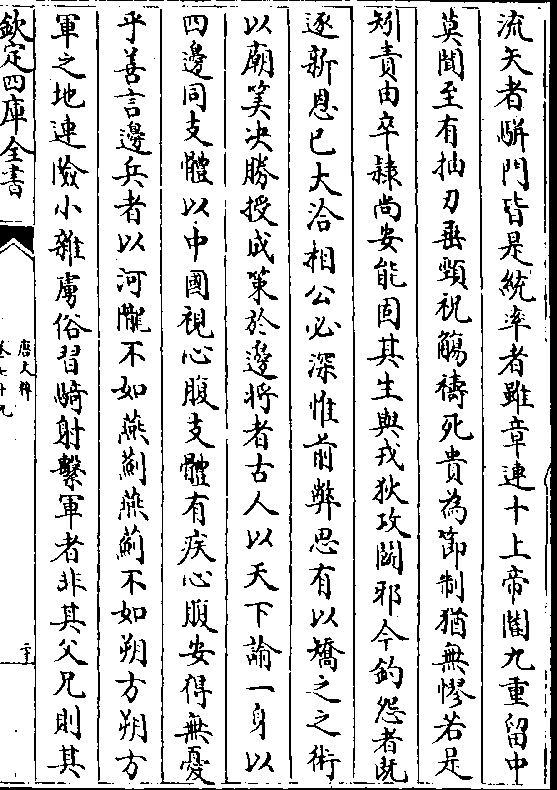 流矢者駢門皆是統率者雖章連十上帝閽九重留中
莫聞至有抽刃垂頸祝觴禱死貴為節制猶無慘若是
矧責由卒隸尚安能固其生與戎狄攻鬬邪今釣怨者旣
逐新恩已大洽相公必深惟前弊思有以矯之之術
以廟筭决勝授成策於邊將者古人以天下諭一身以
四邊同支體以中國視心腹支體有疾心腹安得無憂
乎善言邊兵者以河隴不如燕薊燕薊不如朔方朔方
軍之地連險小雜虜俗習騎射繫軍者非其父兄則其
欽定四庫全書
唐文粹
卷七十九